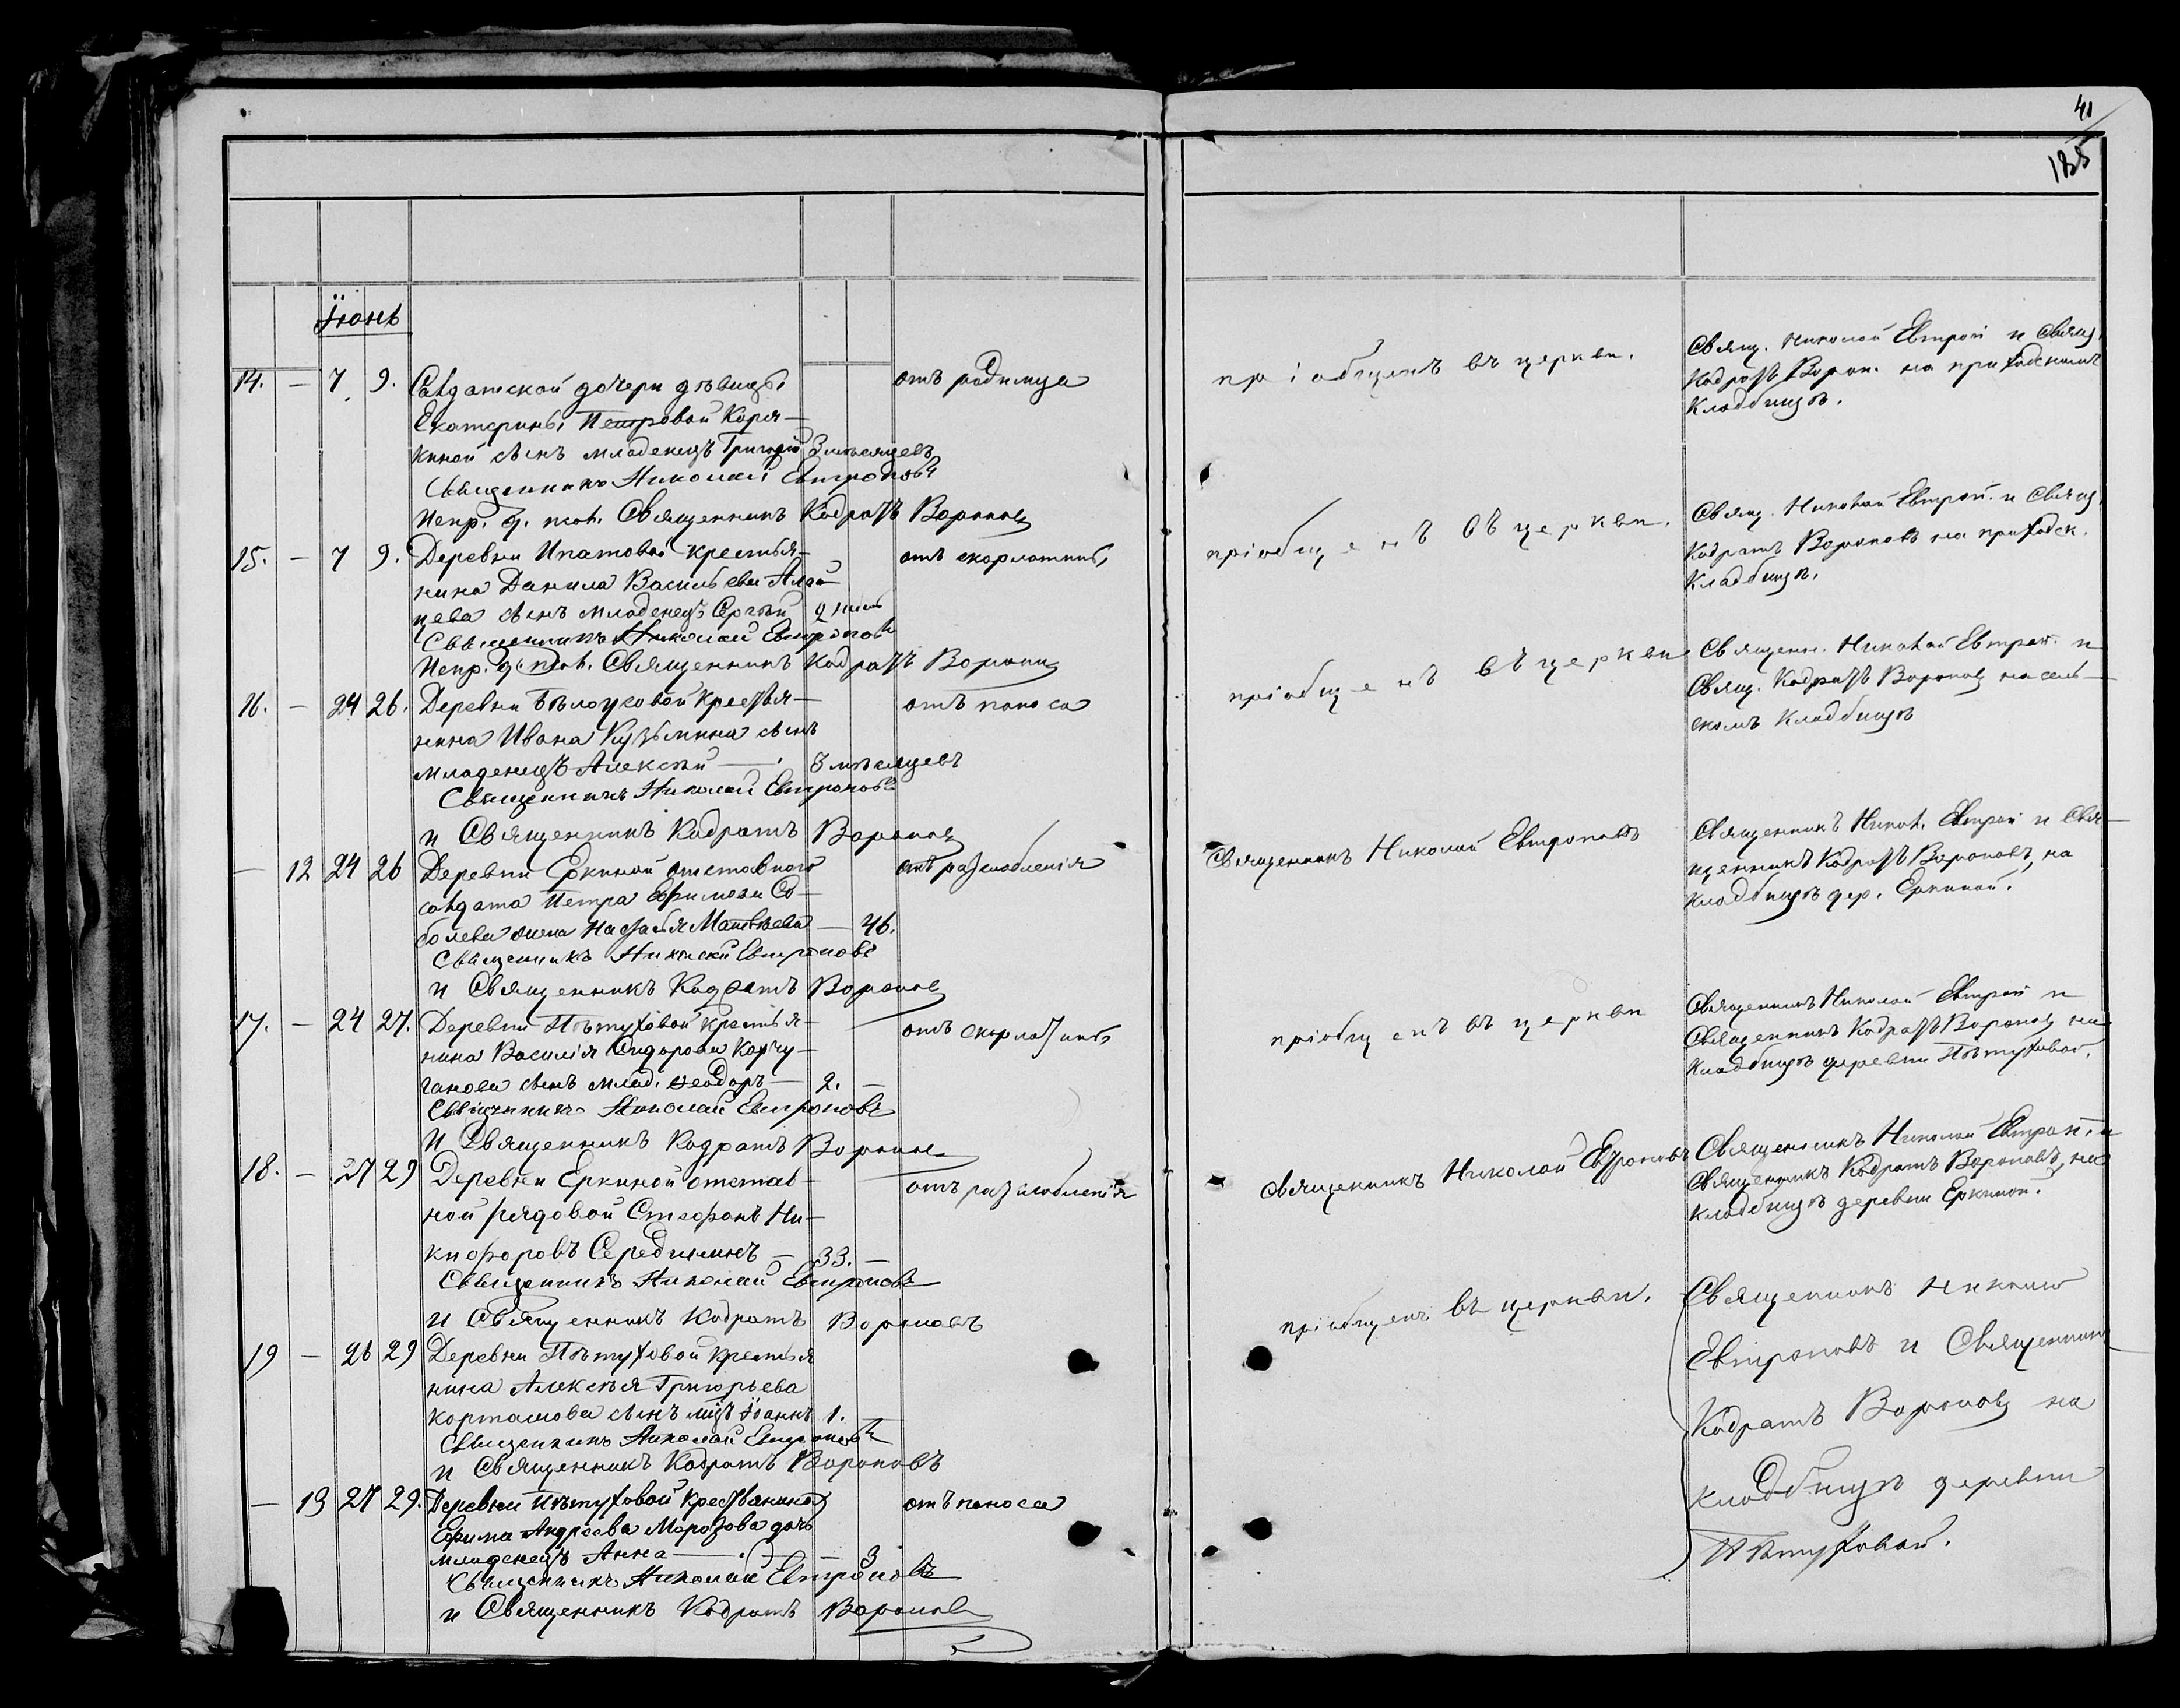 41
185
Іюнь
14. — 7 9. Солдатской дочери дѣвицы
Екатерины Петровой Коря-
киной сынъ младенецъ Григорій 3 мѣсяцевъ
отъ родимца
Священникъ Николай Евтроповъ
Испр. д. псал. Священникъ Кодратъ Вороновъ
пріобщенъ въ церкви.
Свящ. Николай Евтроп. и Свящ.
Кодратъ Ворон. на приходскомъ
кладбищѣ.
15. — 7 9. Деревни Ипатовой крестья-
нина Данила Васильева
сынъ младенецъ Сергѣй
отъ скарлатины
Священникъ Николай Евтроповъ
Испр. д. псал. Священникъ Кодратъ Вороновъ
пріобщенъ въ церкви.
Свящ. Николай Евтроп. и Свящ.
Кодратъ Вороновъ на приходск.
кладбищѣ.
16. — 24 26. Деревни Бѣлоусовой крестья-
нина Ивана Кузьмина сынъ
младенецъ Алексѣй — 3 мѣсяцевъ
отъ поноса
Священникъ Николай Евтроповъ
и Священникъ Кодратъ Вороновъ
пріобщенъ въ церкви
Священ. Николай Евтроп. и
Свящ. Кодратъ Вороновъ на сель-
скомъ кладбищѣ
— 12 24 26 Деревни Еркиной отставного
солдата Петра Ефимова Со-
болева жена Настасья Матвѣева — 46.
отъ разслабленія
Священникъ Николай Евтроповъ
и Священникъ Кодратъ Вороновъ
Священникъ Николай Евтроповъ
Священникъ Никол. Евтроп и Свя-
щенникъ Кодратъ Вороновъ, на
кладбищѣ дер. Еркиной.
17. — 24 27. Деревни Пѣтуховой крестья-
нина Василія Сидорова Корчу-
ганова сынъ млад. Ѳеодоръ — 2. —
отъ скарлатины
Священникъ Николай Евтроповъ
и Священникъ Кодратъ Вороновъ
пріобщенъ въ церкви
Священникъ Николай Евтроп и
Священникъ Кодратъ Вороновъ на
кладбищѣ деревни Пѣтуховой.
18. — 27 29 Деревни Еркиной отстав-
ной рядовой Стефанъ Ни-
кифоровъ Серединъ — 33. —
отъ разслабленія
Священникъ Николай Евтроповъ
и Священникъ Кодратъ Вороновъ
Священникъ Николай Евтроповъ
Священникъ Николай Евтроп. и
Священникъ Кодратъ Вороновъ, на
кладбищѣ деревни Еркиной.
19 — 26 29 Деревни Пѣтуховой крестья
нина Алексѣя Григорьева
Корташова сынъ мцъ Іоаннъ 1.
Священникъ Николай Евтроповъ
и Священникъ Кодратъ Вороновъ
пріобщенъ въ церкви.
Священникъ Николай
Евтроповъ и Священникъ
Кодратъ Вороновъ на
кладбищѣ деревни
Пѣтуховой.
— 13 27 29. Деревни Пѣтуховой крестьянина
Ефима Андреева Морозова дочь
младенецъ Анна — — 3
отъ поноса
Священникъ Николай Евтроповъ
и Священникъ Кодратъ Вороновъ